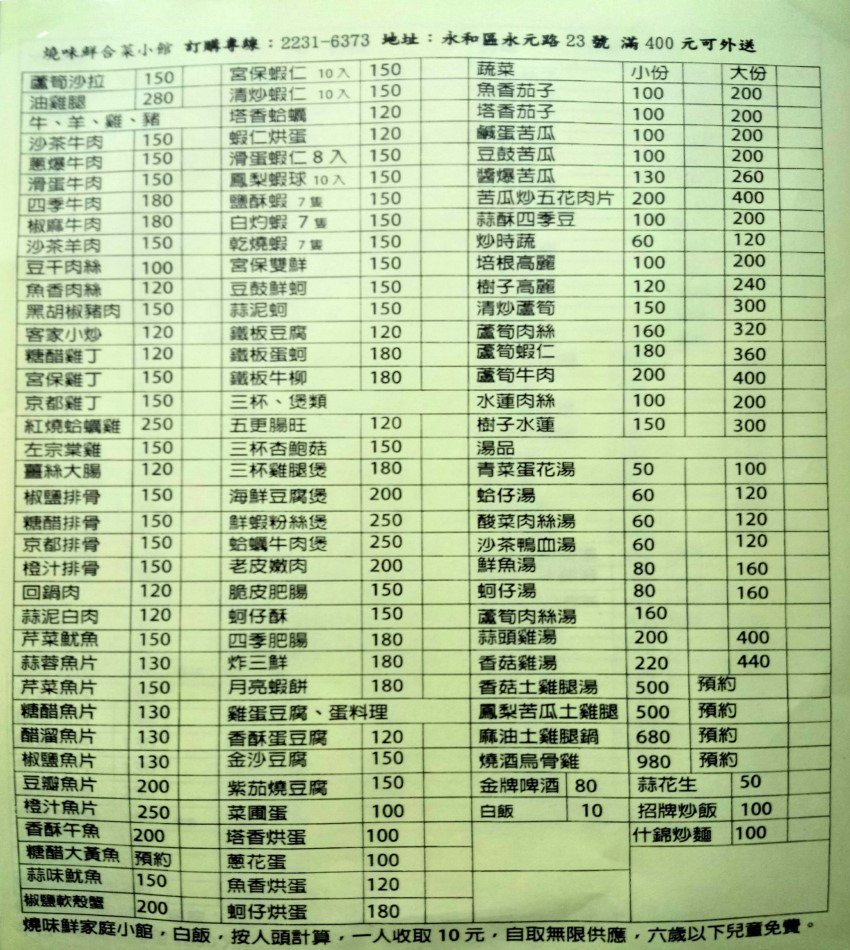 燒味鮮合菜小館 訂購專線：2231-6373 地址：永和區永元路 23 號 滿 400 元可外送
蘆筍沙拉 150 宮保蝦仁 10入 150 蔬菜 小份 大份
油雞腿 280 清炒蝦仁 10入 150 魚香茄子 100 200
牛、羊、雞、豬 塔香蛤蠣 120 塔香茄子 100 200
沙茶牛肉 150 蝦仁烘蛋 120 鹹蛋苦瓜 100 200
蔥爆牛肉 150 滑蛋蝦仁 8 入 150 豆鼓苦瓜 100 200
滑蛋牛肉 150 鳳梨蝦球 10入 150 醬爆苦瓜 130 260
四季牛肉 180 鹽酥蝦 7 隻 150 苦瓜炒五花肉片 200 400
椒麻牛肉 180 白灼蝦 7 隻 150 蒜酥四季豆 100 200
沙茶羊肉 150 乾燒蝦 7隻 150 炒時蔬 60 120
豆干肉絲 100 宮保雙鮮 150 培根高麗 100 200
魚香肉絲 120 豆鼓鮮蚵 150 樹子高麗 120 240
黑胡椒豬肉 150 蒜泥蚵 150 清炒蘆筍 150 300
客家小炒 120 鐵板豆腐 120 蘆筍肉絲 160 320
糖醋雞丁 120 鐵板蛋蚵 180 蘆筍蝦仁 180 360
宮保雞丁 150 鐵板牛柳 180 蘆筍牛肉 200 400
京都雞丁 150 三杯、煲類 水蓮肉絲 100 200
紅燒蛤蠣雞 250 五更腸旺 120 樹子水蓮 150 300
左宗棠雞 150 三杯杏鮑菇 150 湯品
薑絲大腸 120 三杯雞腿煲 180 青菜蛋花湯 50 100
椒鹽排骨 150 海鮮豆腐煲 200 蛤仔湯 60 120
糖醋排骨 150 鮮蝦粉絲煲 250 酸菜肉絲湯 60 120
京都排骨 150 蛤蠣牛肉煲 250 沙茶鴨血湯 60 120
橙汁排骨 150 老皮嫩肉 200 鮮魚湯 80 160
回鍋肉 120 脆皮肥腸 150 蚵仔湯 80 160
蒜泥白肉 120 蚵仔酥 150 蘆筍肉絲湯 160
芹菜魷魚 150 四季肥腸 180 蒜頭雞湯 200 400
蒜蓉魚片 130 炸三鮮 180 香菇雞湯 220 440
芹菜魚片 150 月亮蝦餅 180 香菇土雞腿湯 500 預約
糖醋魚片 130 雞蛋豆腐、蛋料理 鳳梨苦瓜土雞腿 500 預約
醋溜魚片 130 香酥蛋豆腐 120 麻油土雞腿鍋 680 預約
椒鹽魚片 130 金沙豆腐 150 燒酒烏骨雞 980 預約
豆瓣魚片 200 紫茄燒豆腐 150 金牌啤酒 80 蒜花生 50
橙汁魚片 250 菜圃蛋 100 白飯 10 招牌炒飯 100
香酥午魚 200 塔香烘蛋 100 什錦炒麵 100
糖醋大黃魚 預約 蔥花蛋 100
蒜味魷魚 150 魚香烘蛋 120
椒鹽軟殼蟹 200 蚵仔烘蛋 180
燒味鮮家庭小館，白飯，按人頭計算，一人收取 10 元，自取無限供應，六歲以下兒童免費。